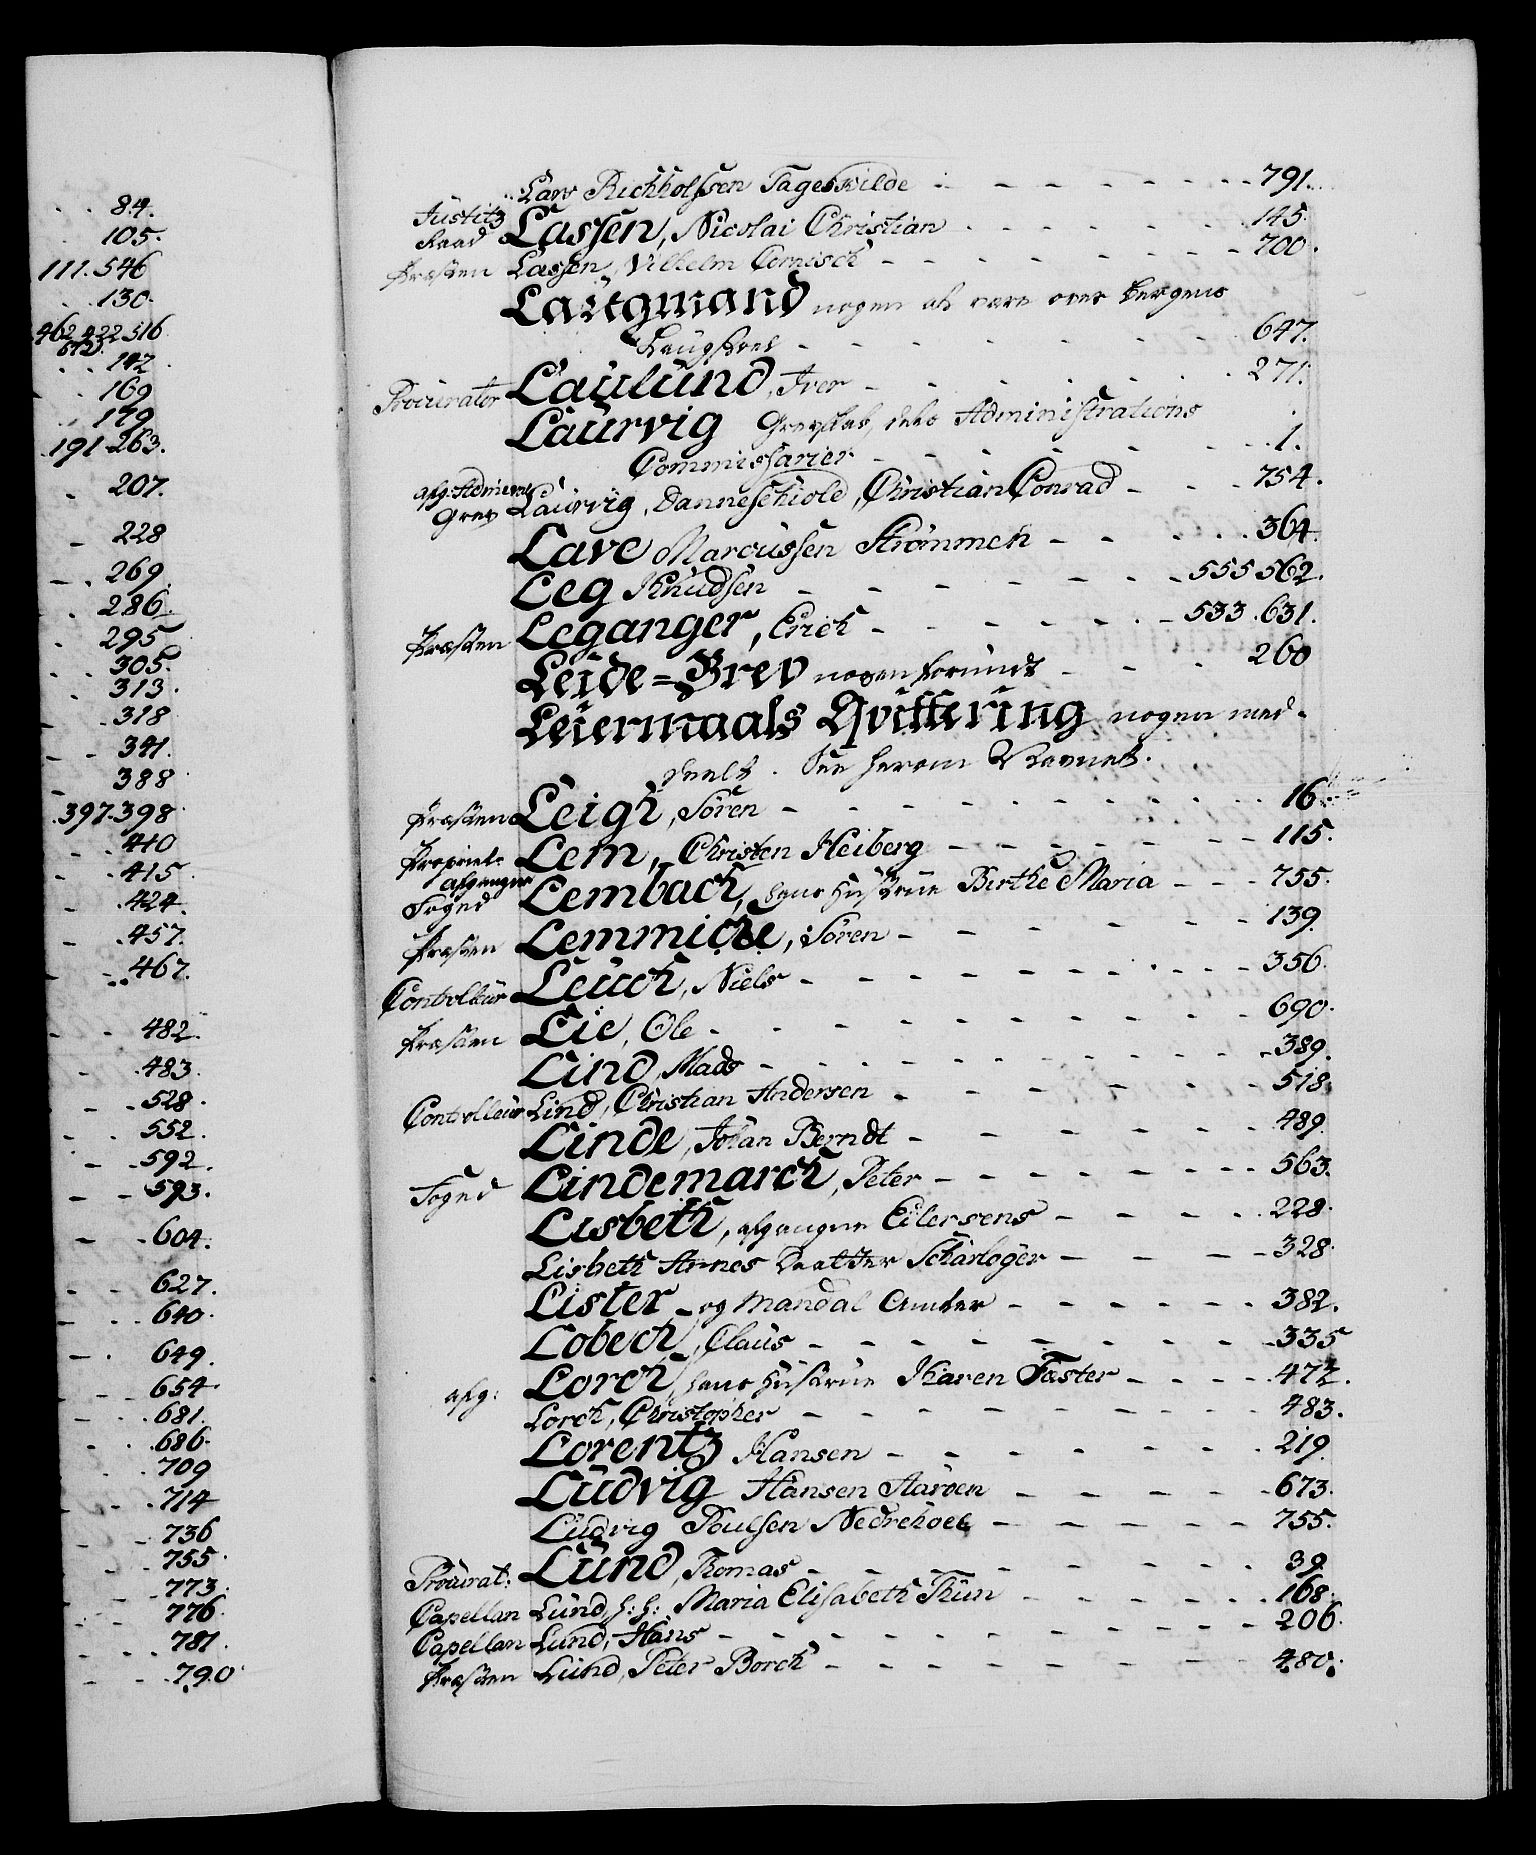 84.
105.
111.546
130.
462.422.516
672.
142
169
179
191.263.
207.
228
269.
286.
295
305.
313.
318
341.
388
397.398
410
415.
424.
457.
467.
482.
483.
528.
552.
592.
593.
604.
627.
640.
649.
654.
681.
686.
709
714
736
755.
773.
776.
781.
790.
Lars Richholssen Tageskilde - - - 791.
Justitz Raad Lassen, Nicolai Christian - - - 145.
Præsten Lassen, Vilhelm Cornisch - - - 700.
Laugmand nogen at være over Bergens
Laugstoel - - - 647.
Procurator Laulund, Iver - - - 271.
Laurvig Grevskab, dets Administrations
Commissarier - - - 1.
afg: Admiral Grev Laurvig, Danneschiold, Christian Conrad - - - 754.
Lave Marcussen Strømmen - - - 364.
Leg Knudsen - - - 555 562.
Præsten Leganger, Erich - - - 533.631.
Leide=Brev nogen forundt - - - 260
Leiermaals Qvittering nogen med-
deelt. See herom Navnet.
Præsten Leigh, Sören - - - 16.
Propriet: Lem, Christen Heiberg - - - 115.
afgangne Foged Lembach, hans Hustrue Birthe Maria - - - 755.
Præsten Lemmiche, Sören - - - 139.
Controlleur Leuch, Niels - - - 356.
Præsten Lie, Ole - - - 690.
Lind, Mads - - - 389.
Controlleur Lind, Christian Andersen - - - 518.
Linde, Johan Berndt - - - 489.
Foged Lindemarck, Peter - - - 563.
Lisbeth, afgangne Eilersens - - - 228.
Lisbeth Arnes Daatter Scharloger - - - 328.
Lister - og Mandal Amter - - - 382.
Lobech, Claus - - - 335
afg: Lorch, hans Hustrue Karen Fæster - - - 472.
Lorch, Christopher - - - 483.
Lorentz Hansen - - - 219.
Ludvig Hansen Aarøen - - - 673.
Ludvig Poulsen Nedrehoel - - - 755.
Procurat: Lund, Thomas - - - 39.
Capellan Lund, h: h: Maria Elisabeth Thun - - - 168.
Capellan Lund, Hans - - - 206.
Præsten Lund, Peter Borch - - - 480.